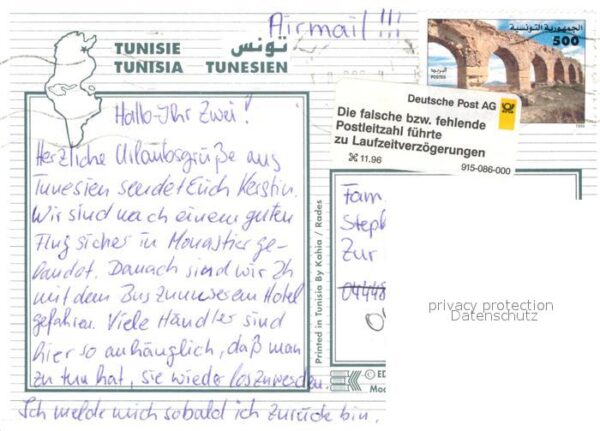 Airmail!!!
TUNISIE تونس
TUNISIA TUNESIEN
الجمهورية التونسية
500
POSTES
Deutsche Post AG
Die falsche bzw. fehlende
Postleitzahl führte
zu Laufzeitverzögerungen
11.96 915-086-000
Hallo Ihr Zwei!
Herzliche Urlaubsgrüße aus
Tunesien sendet Euch Kerstin.
Wir sind nach einem guten
Flug sicher in Monastier ge-
landet. Danach sind wir 2h
mit dem Bus zu unserem Hotel
gefahren. Viele Händler sind
hier so anhänglich, daß man
zu tun hat, sie wieder loszuwerden.
Ich melde mich sobald ich zurück bin.
Printed in Tunisia By Kahia / Rades
Fam.
Steph
Zur
04448
privacy protection
Datenschutz
© ED